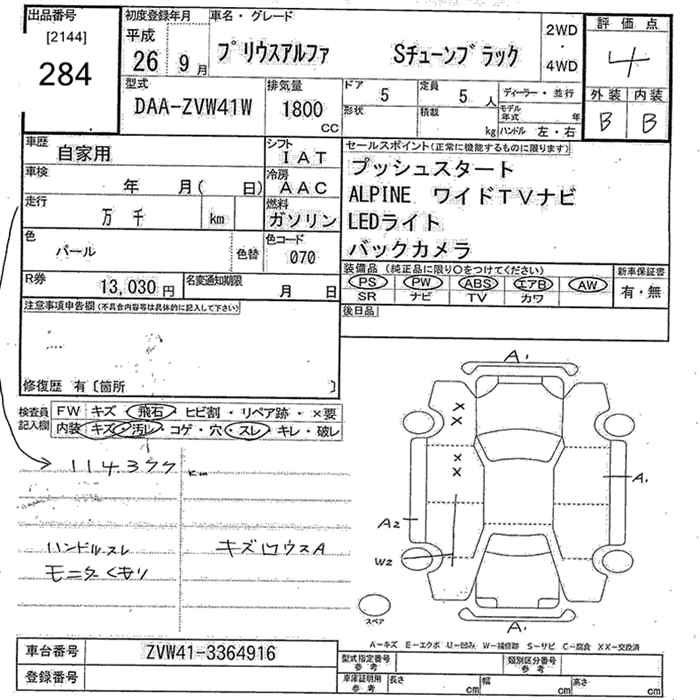 出品番号 初度登録年月 車名・グレード 2WD・4WD 評価点
[2144] 284
平成 26 9月 プリウスアルファ Sチューンブラック 4
型式 排気量 ドア 5 定員 5人 ディーラー・並行 外装 内装
DAA-ZVW41W 1800cc 形状 積載 kg モデル年式 年 B B
ハンドル 左・右
車歴 自家用 シフト IAT セールスポイント(正常に機能するものに限ります)
車検 年 月( 日) 冷房 AAC プッシュスタート
走行 万 千 km 燃料 ガソリン ALPINE ワイドTVナビ
LEDライト
色 パール 色替 色コード 070 バックカメラ
R券 13,030円 名変通知期限 月 日 装備品(純正品に限り○をつけてください) 新車保証書
PS PW ABS エアB AW 有・無
SR ナビ TV カワ
注意事項申告欄(不具合内容等は具体的に記入して下さい) 後日品
修復歴 有〔箇所 〕
検査員記入欄 FW キズ・飛石・ヒビ割・リペア跡・×要
内装 キズ・汚レ・コゲ・穴・スレ・キレ・破レ
114.377km
ハンドルスレ キズ凹ウスA
モニタくもり
A1
X
X
X
X
A1
A2
W2
A1
スペア
A-キズ E-エクボ U-凹み W-補修跡 S-サビ C-腐食 XX-交換済
車台番号 ZVW41-3364916 型式指定番号参考 類別区分番号参考
登録番号 車庫証明用参考 長さ cm 幅 cm 高さ cm